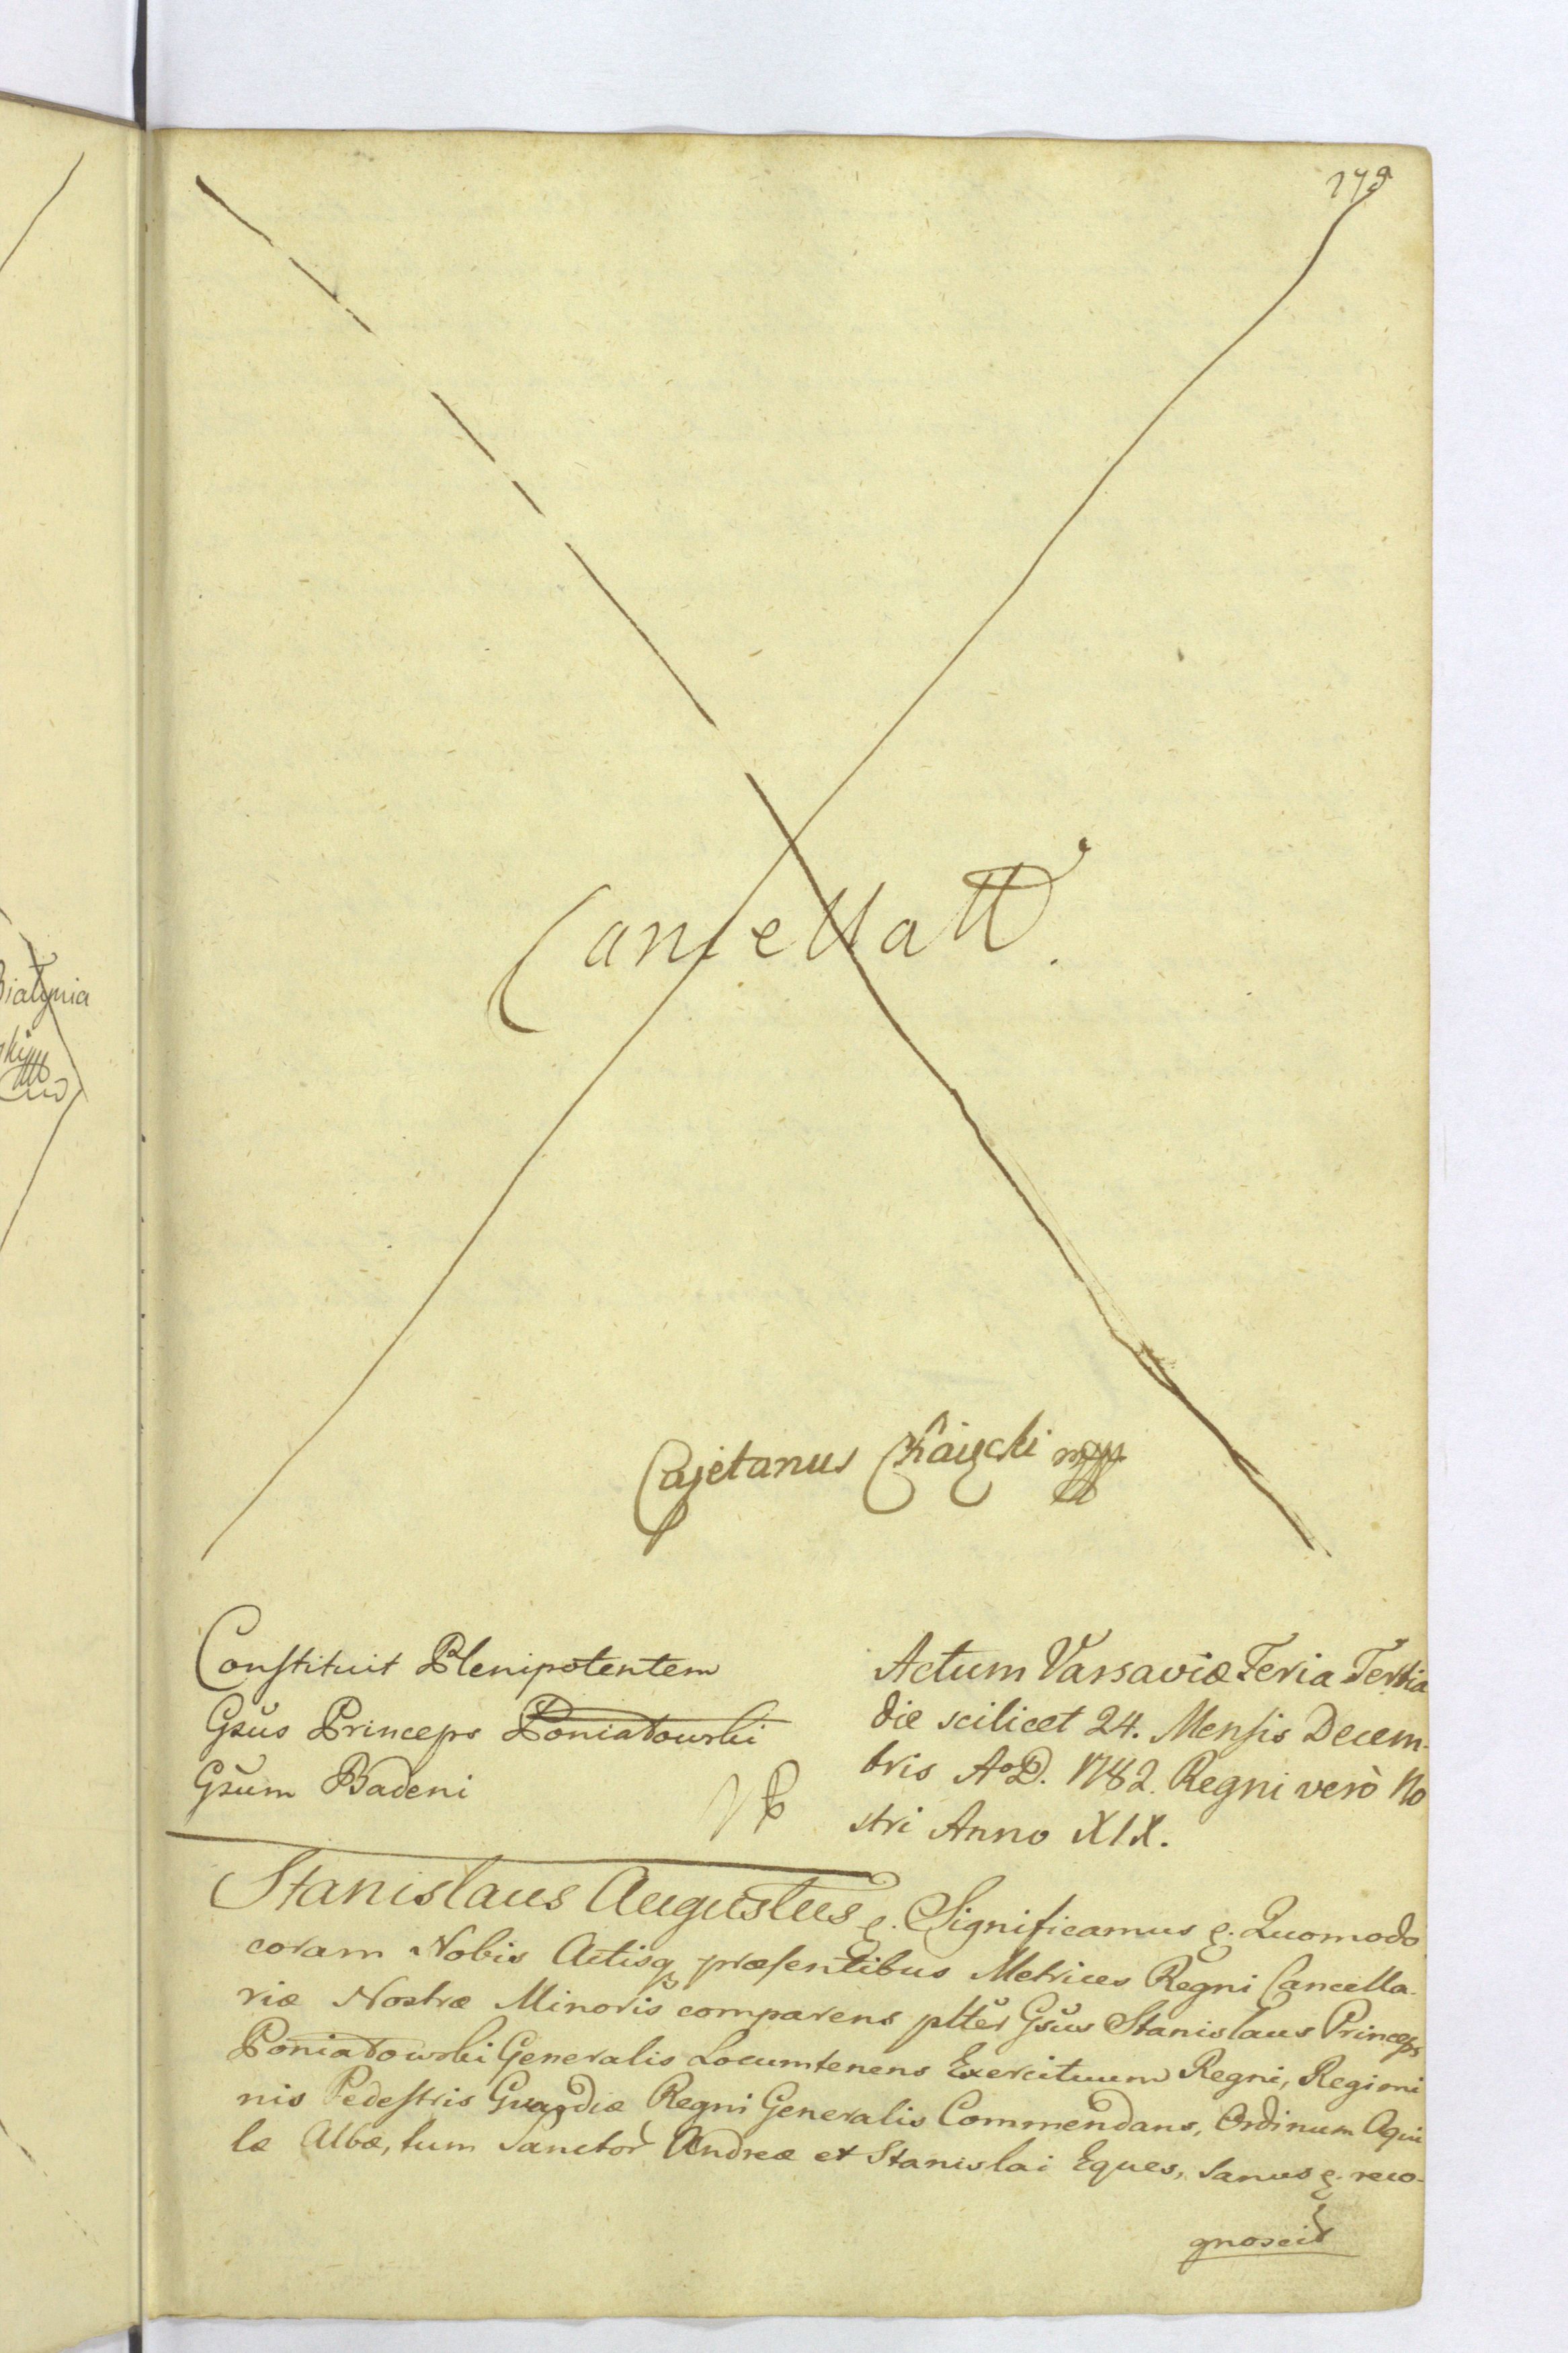 179
Cancellatt.
Cajetanus
Constituit Plenipotentem
Gsus Princeps Poniatowski
Gsum Badeni
Actum Varsaviæ Feria Tertia
die scilicet 24. Mensis Decem-
bris AoD. 1782. Regni verò No
stri Anno XIX.
Stanislaus Augustus &. Significamus &. Quomodo
coram Nobis Actisq præsentibus Metrices Regni Cancella-
riæ Nostræ Minoris comparens pltter Gsus Stanislaus Princeps
Poniatowski Generalis Locumtenens Exercituum Regni, Regimi
nis Pedestris Guardiæ Regni Generalis Commendans, Ordinum Aqui
læ Albæ, tum Sanctor Andreæ et Stanislai Eques, sanus &. reco-
gnoscit
Białynia